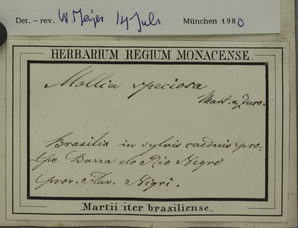 Det. – rev. W Meijer 14 Juli München 1980
HERBARIUM REGIUM MONACENSE.
Mollia speciosa
Mart. & Zucc.
Brasilia in sylvis caeduis pro-
pe Barra do Rio Negro
prov. Fluv. Nigri.
Martii iter brasiliense.